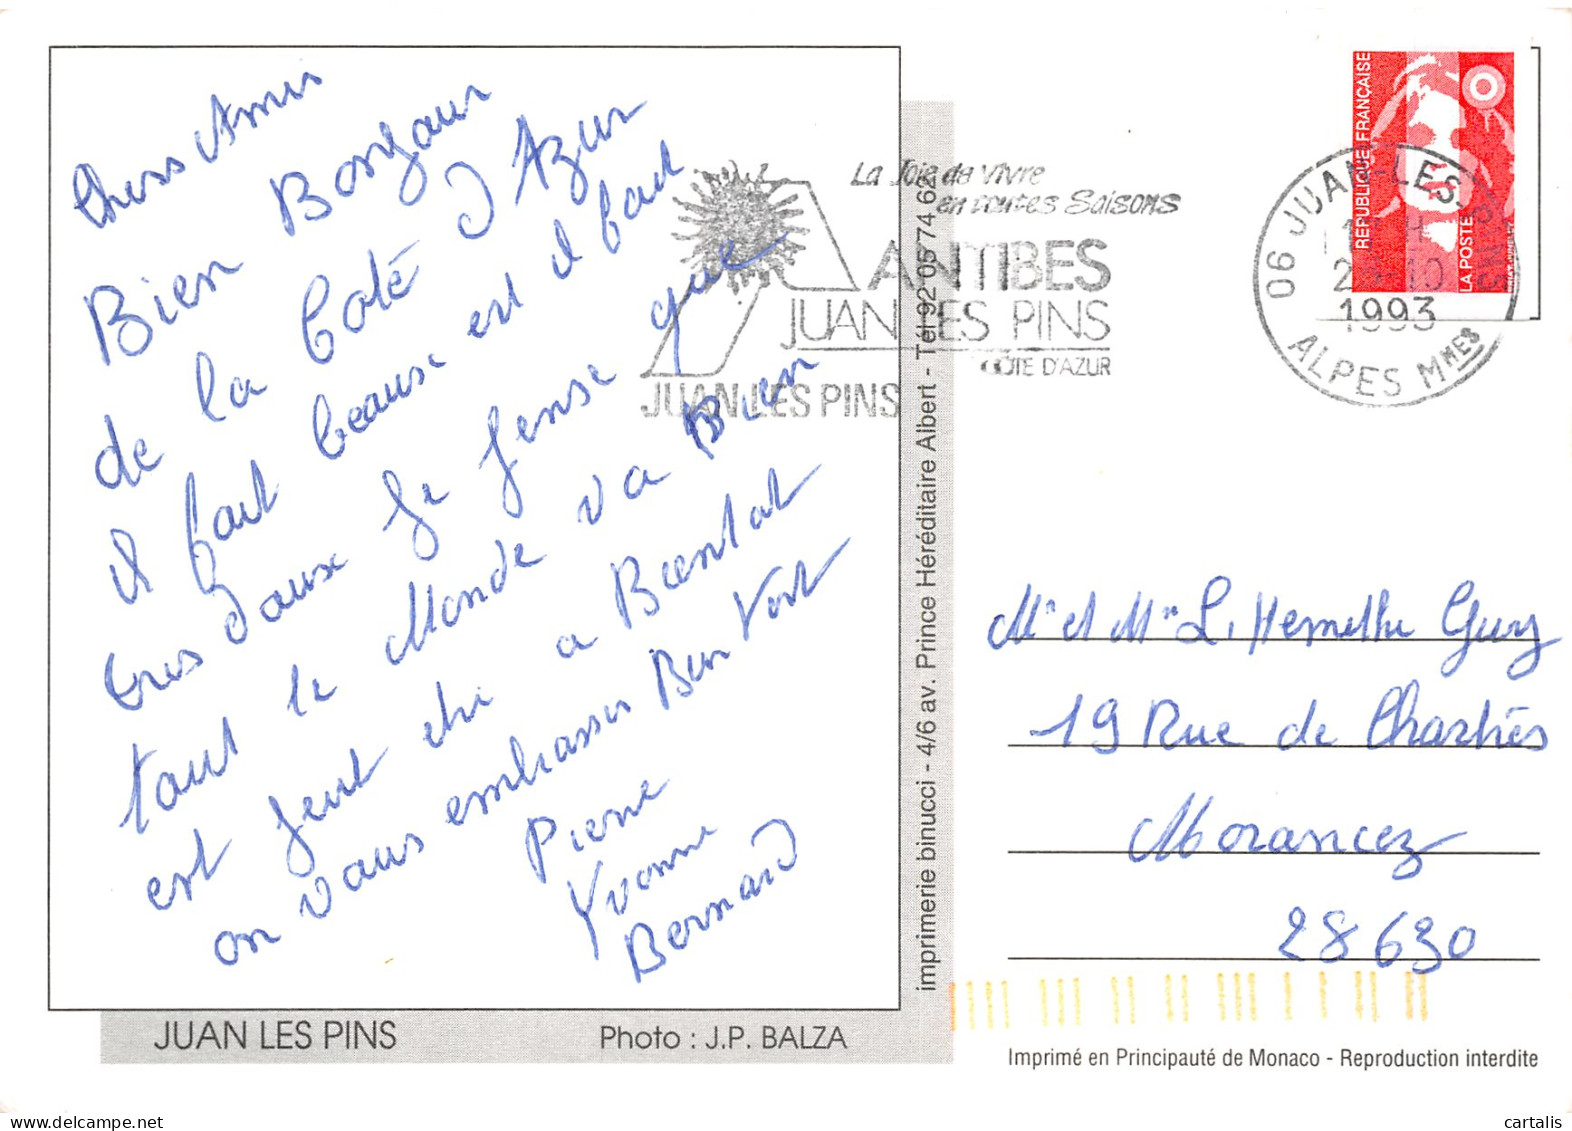 Chers Amis
Bien Bonjour
de la Coté d Azur
il fait beause est il faut
tres Doux Je pense que
tout le Monde va Bien
est peut etre a Bientot
on vous embrasse Bien Fort
Pierre
Yvonne
Bernard
JUAN LES PINS
Photo : J.P. BALZA
imprimerie binucci - 4/6 av. Prince Héréditaire Albert - Tél 92 05 74 62
La Joie de Vivre
en toutes Saisons
ANTIBES
JUAN LES PINS
CÔTE D'AZUR
JUAN LES PINS
REPUBLIQUE FRANÇAISE
LA POSTE
06 JUAN-LES-PINS
10
1993
ALPES Mmes
Mr et Mme L'Hermitte Guy
19 Rue de Chartres
Morancez
28630
Imprimé en Principauté de Monaco - Reproduction interdite
cartalis